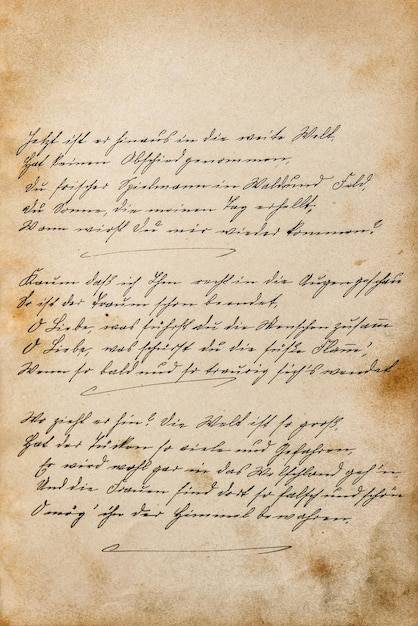 Jetzt ist er hinaus in die weite Welt,
Hat keinen Abschied genommen,
Du frischer Spielmann in Wald und Feld,
Du Sonne, die meinen Tag erhellt,
Wann wirst Du mir wieder kommen?
Kaum daß ich Ihm recht in die Augen geschaut
So ist der Traum schon beendet,
O Liebe, was führst du die Menschen zusamm
O Liebe, was schürst du die süße Flamm'
Wenn so bald und so traurig sich's wendet
Wo zieht er hin? Die Welt ist so groß,
Hat der Tücken so viele und Gefahren,
Er wird wohl gar in das Welschland geh'n,
Und die Frauen sind dort so falsch und schön
O mög' ihn der Himmel bewahren.